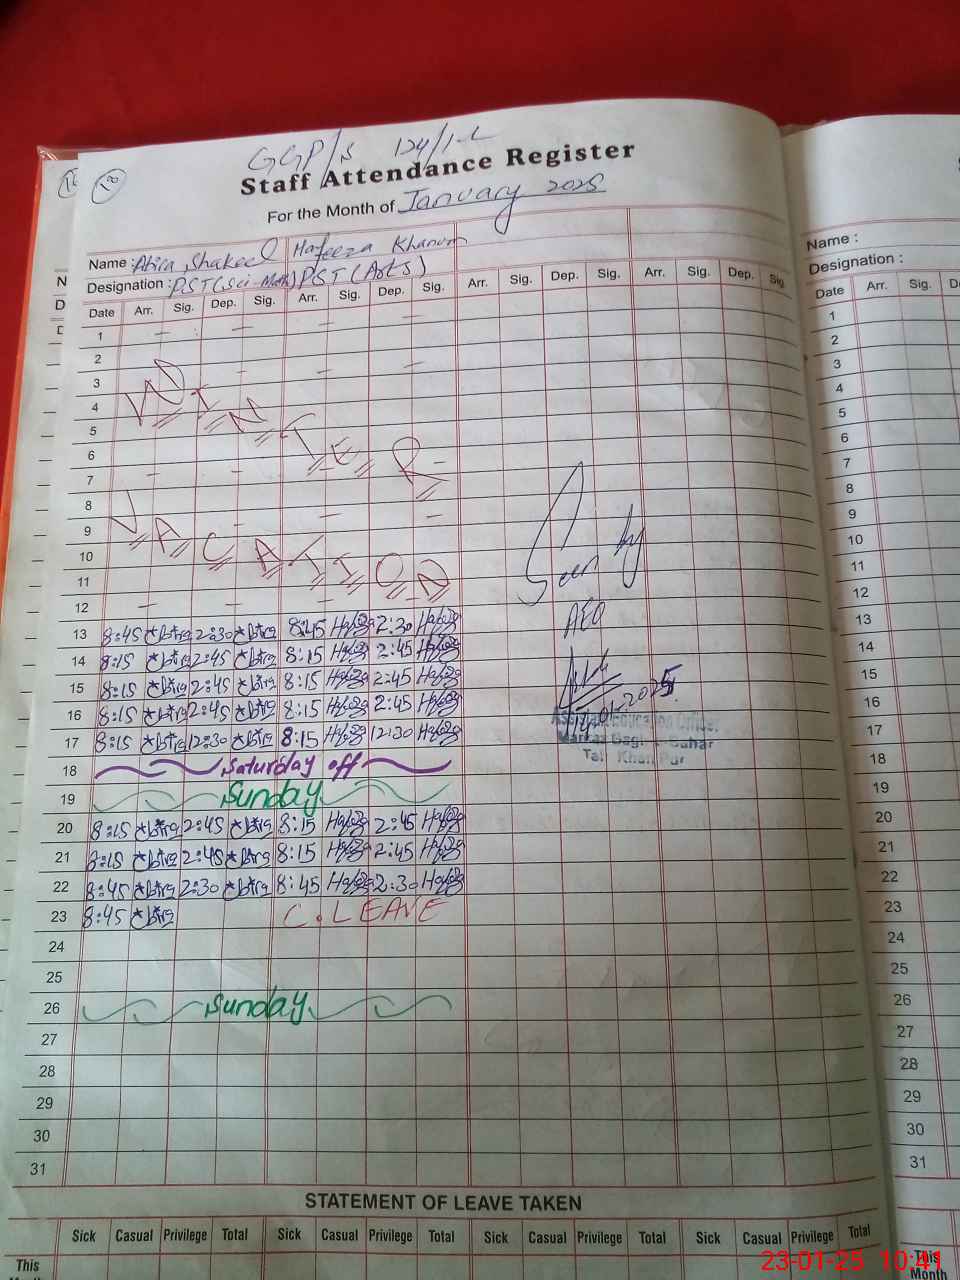 GGP/S 124/1-L
Staff Attendance Register
For the Month of January 2025
Name : Atira Shakeel Hafeeza Khanum
Designation : PST(Sci-Math) PST(Arts)
Date Arr. Sig. Dep. Sig. Arr. Sig. Dep. Sig. Arr. Sig. Dep. Sig. Arr. Sig. Dep. Sig.
1
2
3
4
5
6
WINTER
7
8
9
10
VACATION
11
12
13 8:45 2:30 8:45 2:30
14 8:15 2:45 8:15 2:45
15 8:15 2:45 8:15 2:45
16 8:15 2:45 8:15 2:45
17 8:15 12:30 8:15 12:30
18 Saturday off
19 Sunday
20 8:15 2:45 8:15 2:45
21 8:15 2:45 8:15 2:45
22 8:45 2:30 8:45 2:30
23 8:45 C. LEAVE
24
25
26 Sunday
27
28
29
30
31
Seen by
AEO
14-01-2025
Assistant Education Officer
STATEMENT OF LEAVE TAKEN
Sick Casual Privilege Total Sick Casual Privilege Total Sick Casual Privilege Total Sick Casual Privilege Total
This
Name :
Designation :
Date Arr. Sig.
1
2
3
4
5
6
7
8
9
10
11
12
13
14
15
16
17
18
19
20
21
22
23
24
25
26
27
28
29
30
31
This
Month
23-01-25 10:41